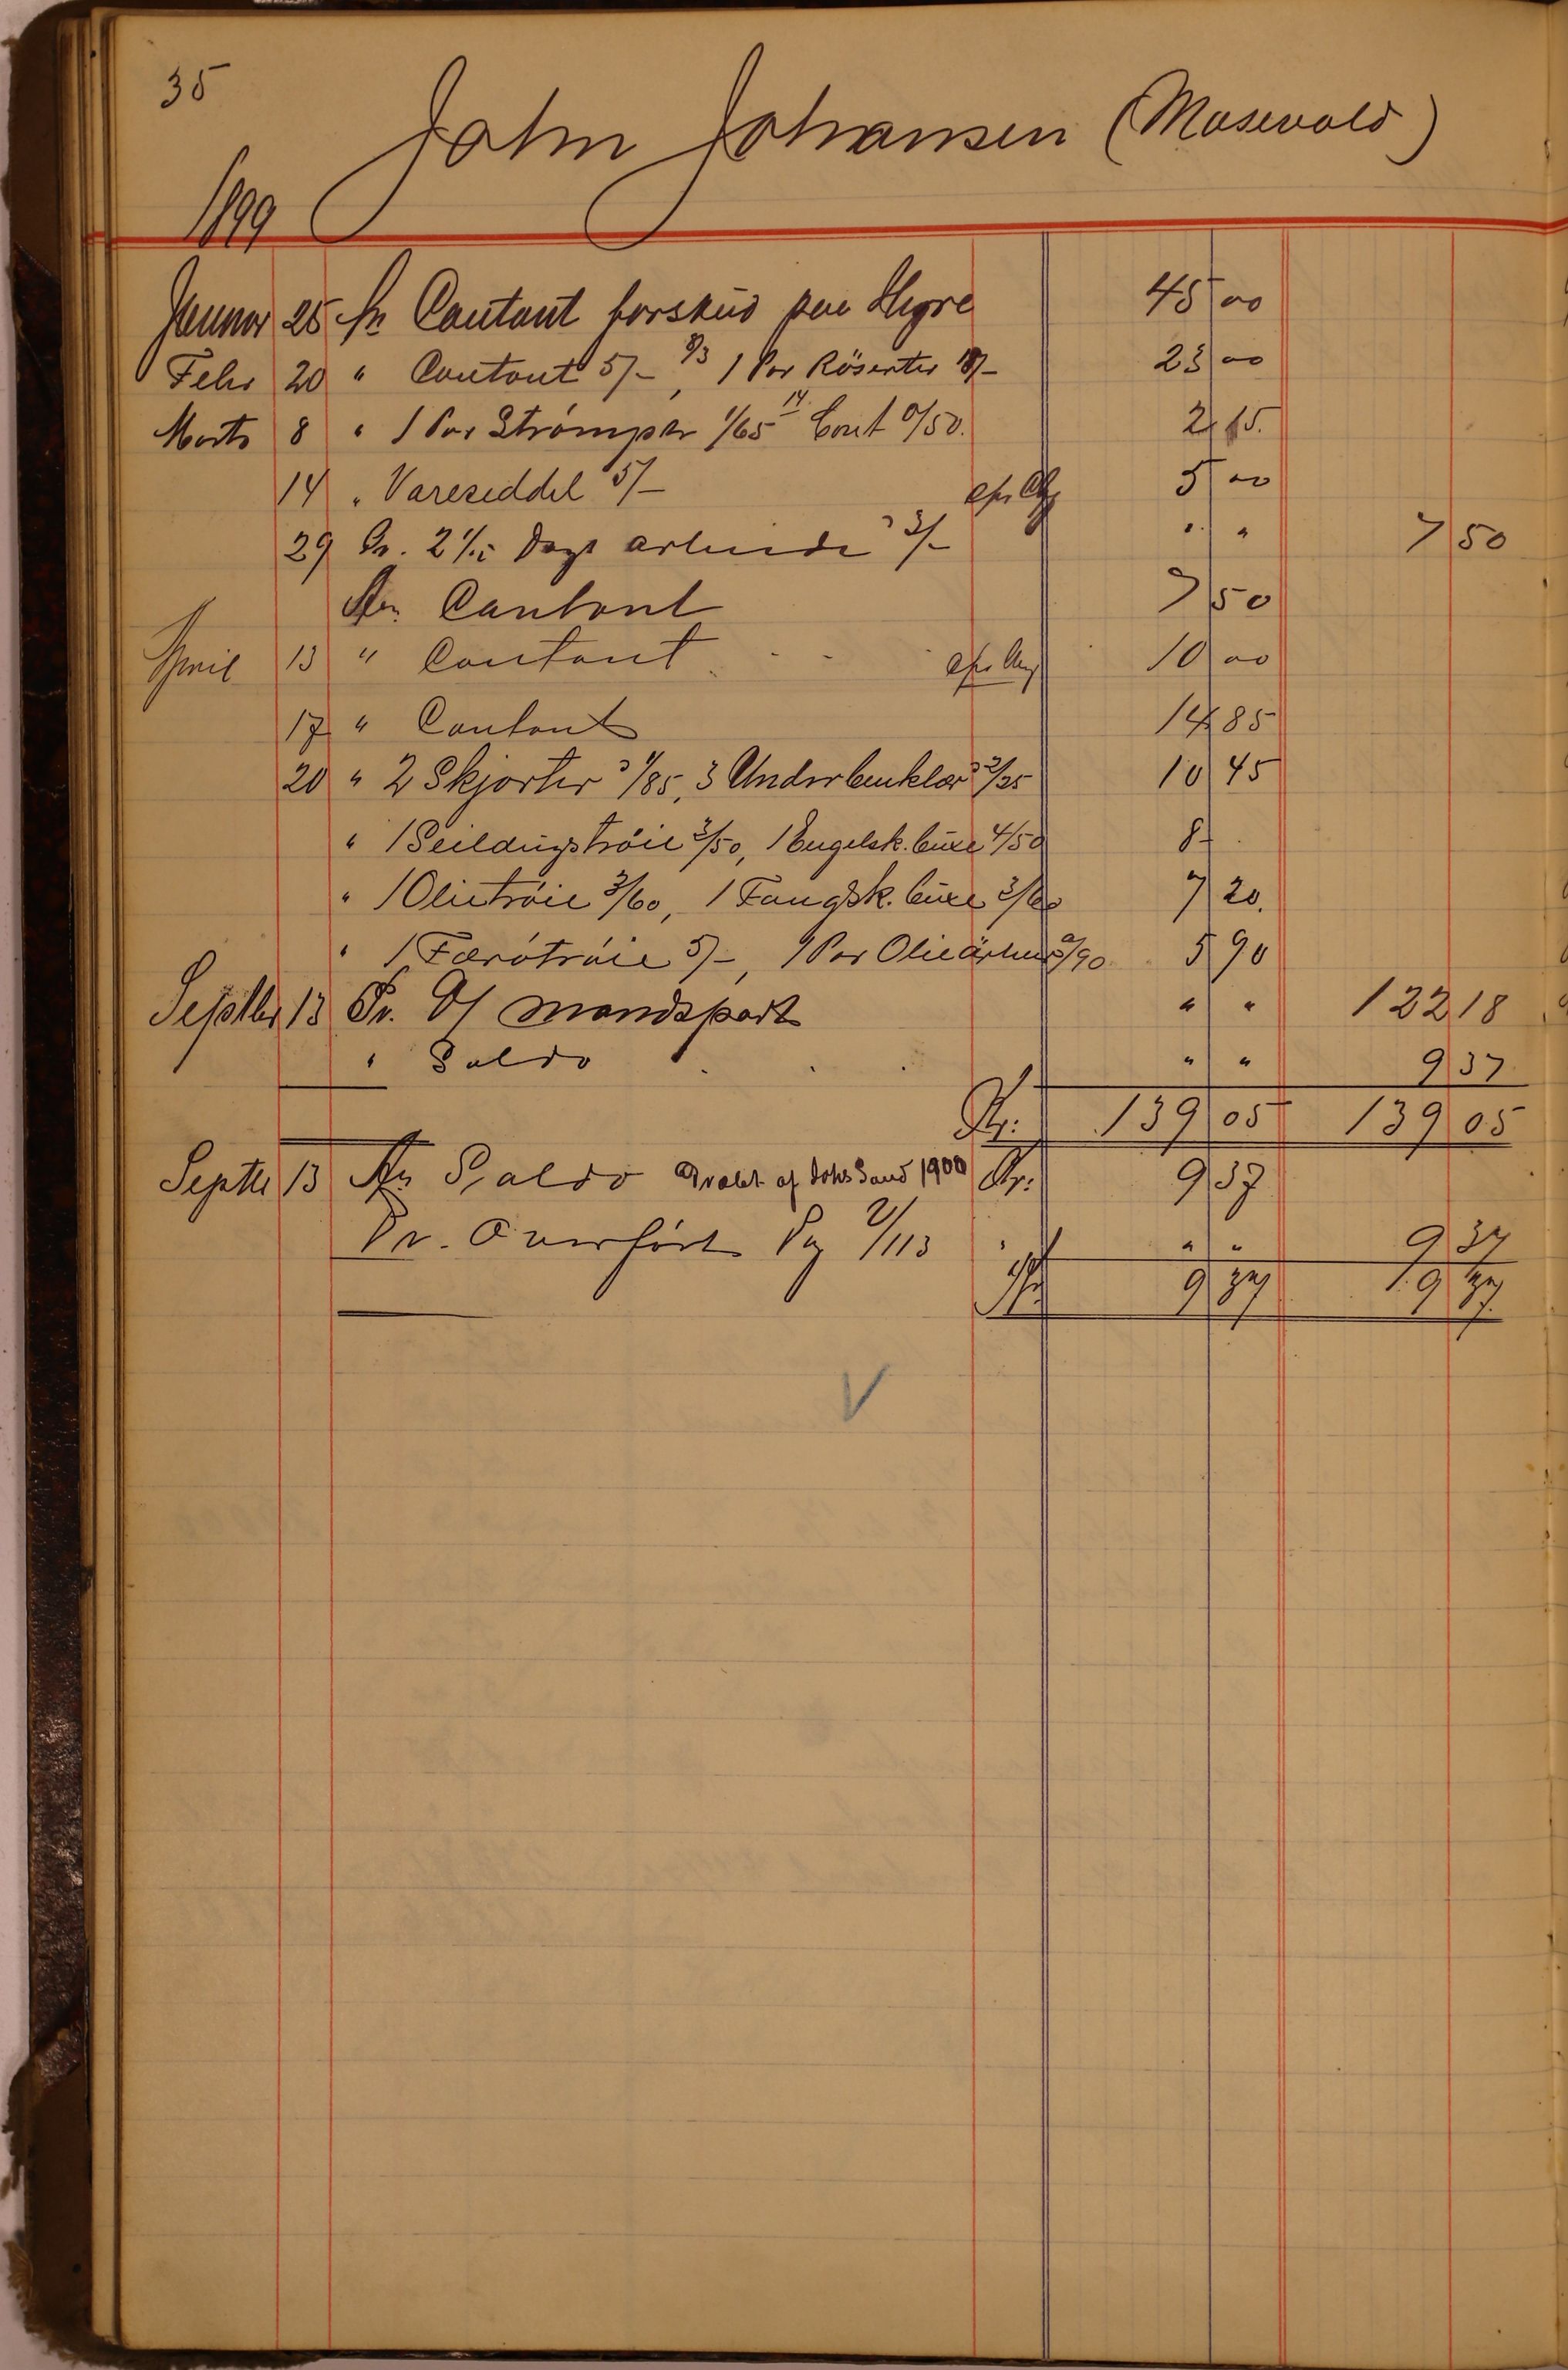 35
John Johansen (Masevold)
1899
Januar 25 An Contant forskud paa Hyre 45 00
Febr 20 " Contant 5/- 8/3, 1 Par Röserter 18/- 23 00
Marts 8 " 1 Par Strømper 1/65 14 Cont 0/50. 2 15.
14 " Vareseddel 5/- 5 00
29 Pr. 2 1/2 Dags arbeide à 3/- " " 7 50
An Contant 7 50
April 13 " Contant 10 00
17 " Contant 14 85
20 " 2 Skjorter à 1/85, 3 Underbenklær à 2/25 10 45
" 1 Seildugstrøie 3/50, 1 Engelsk. buxe 4/50 8 -
" 1 Olietrøie 3/60, 1 Fangsk. buxe 3/60 7 20.
" 1 Færøtrøie 5/-, 1 Par Olieärmer 0/90 5 90
Septbr 13 Pr. mandspart " " 122 18
" Saldo " " 9 37
Kr: 139 05 139 05
Septbr 13 An Saldo af Johs Sand 1900 Kr: 9 37
Pr. Overført Pag 2/113 " " " 9 37
Kr 9 37 9 37